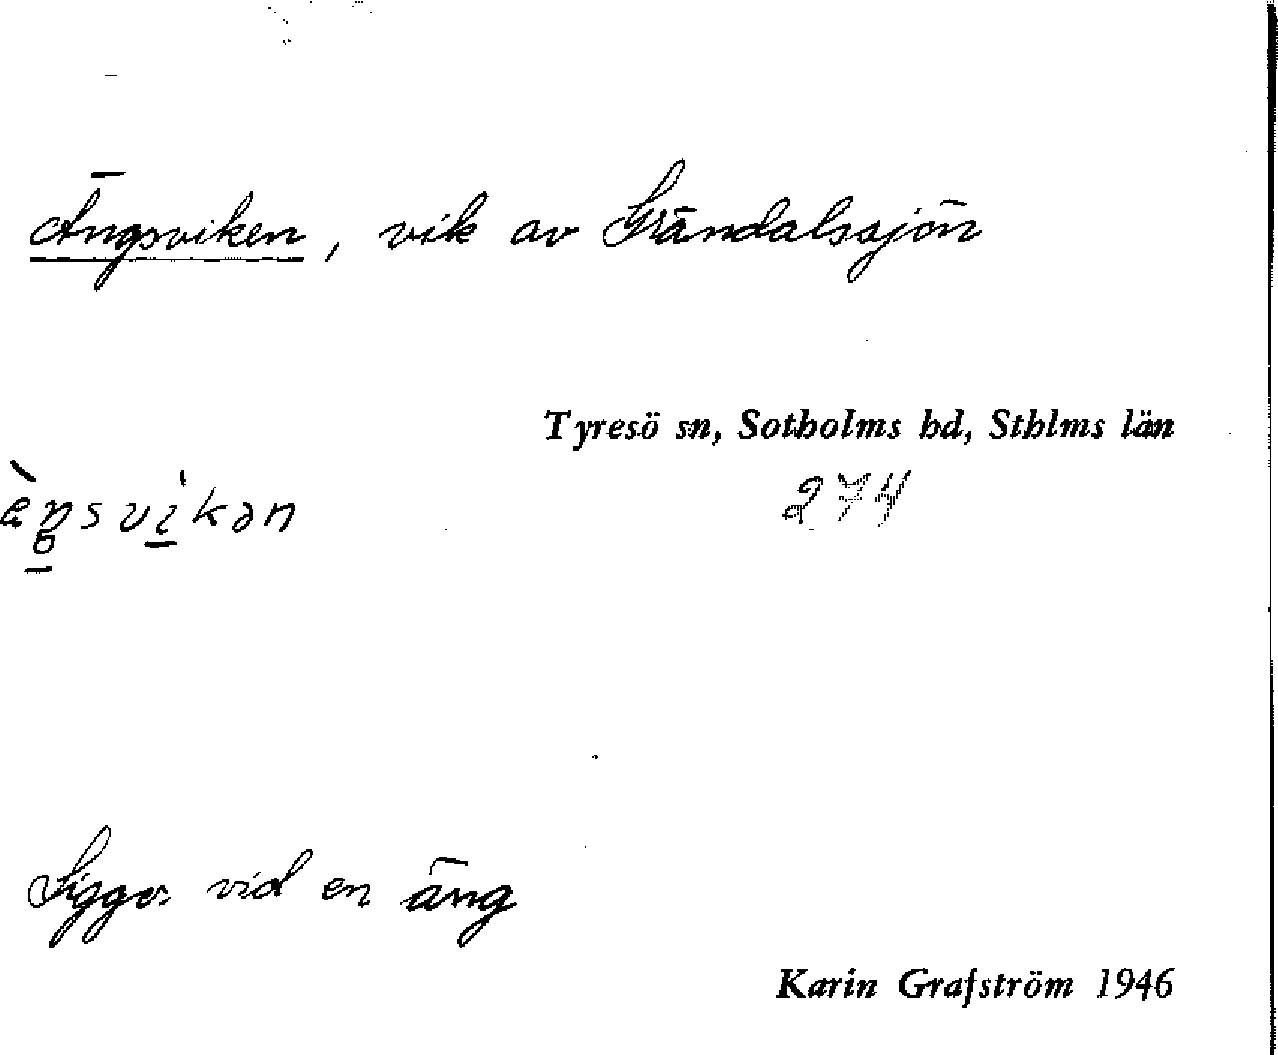 Ängsviken, vik av Grändalssjön
Tyresö sn, Sotholms hd, Sthlms län
274
æ̀ŋsvìkən
Ligger vid en äng
Karin Grafström 1946